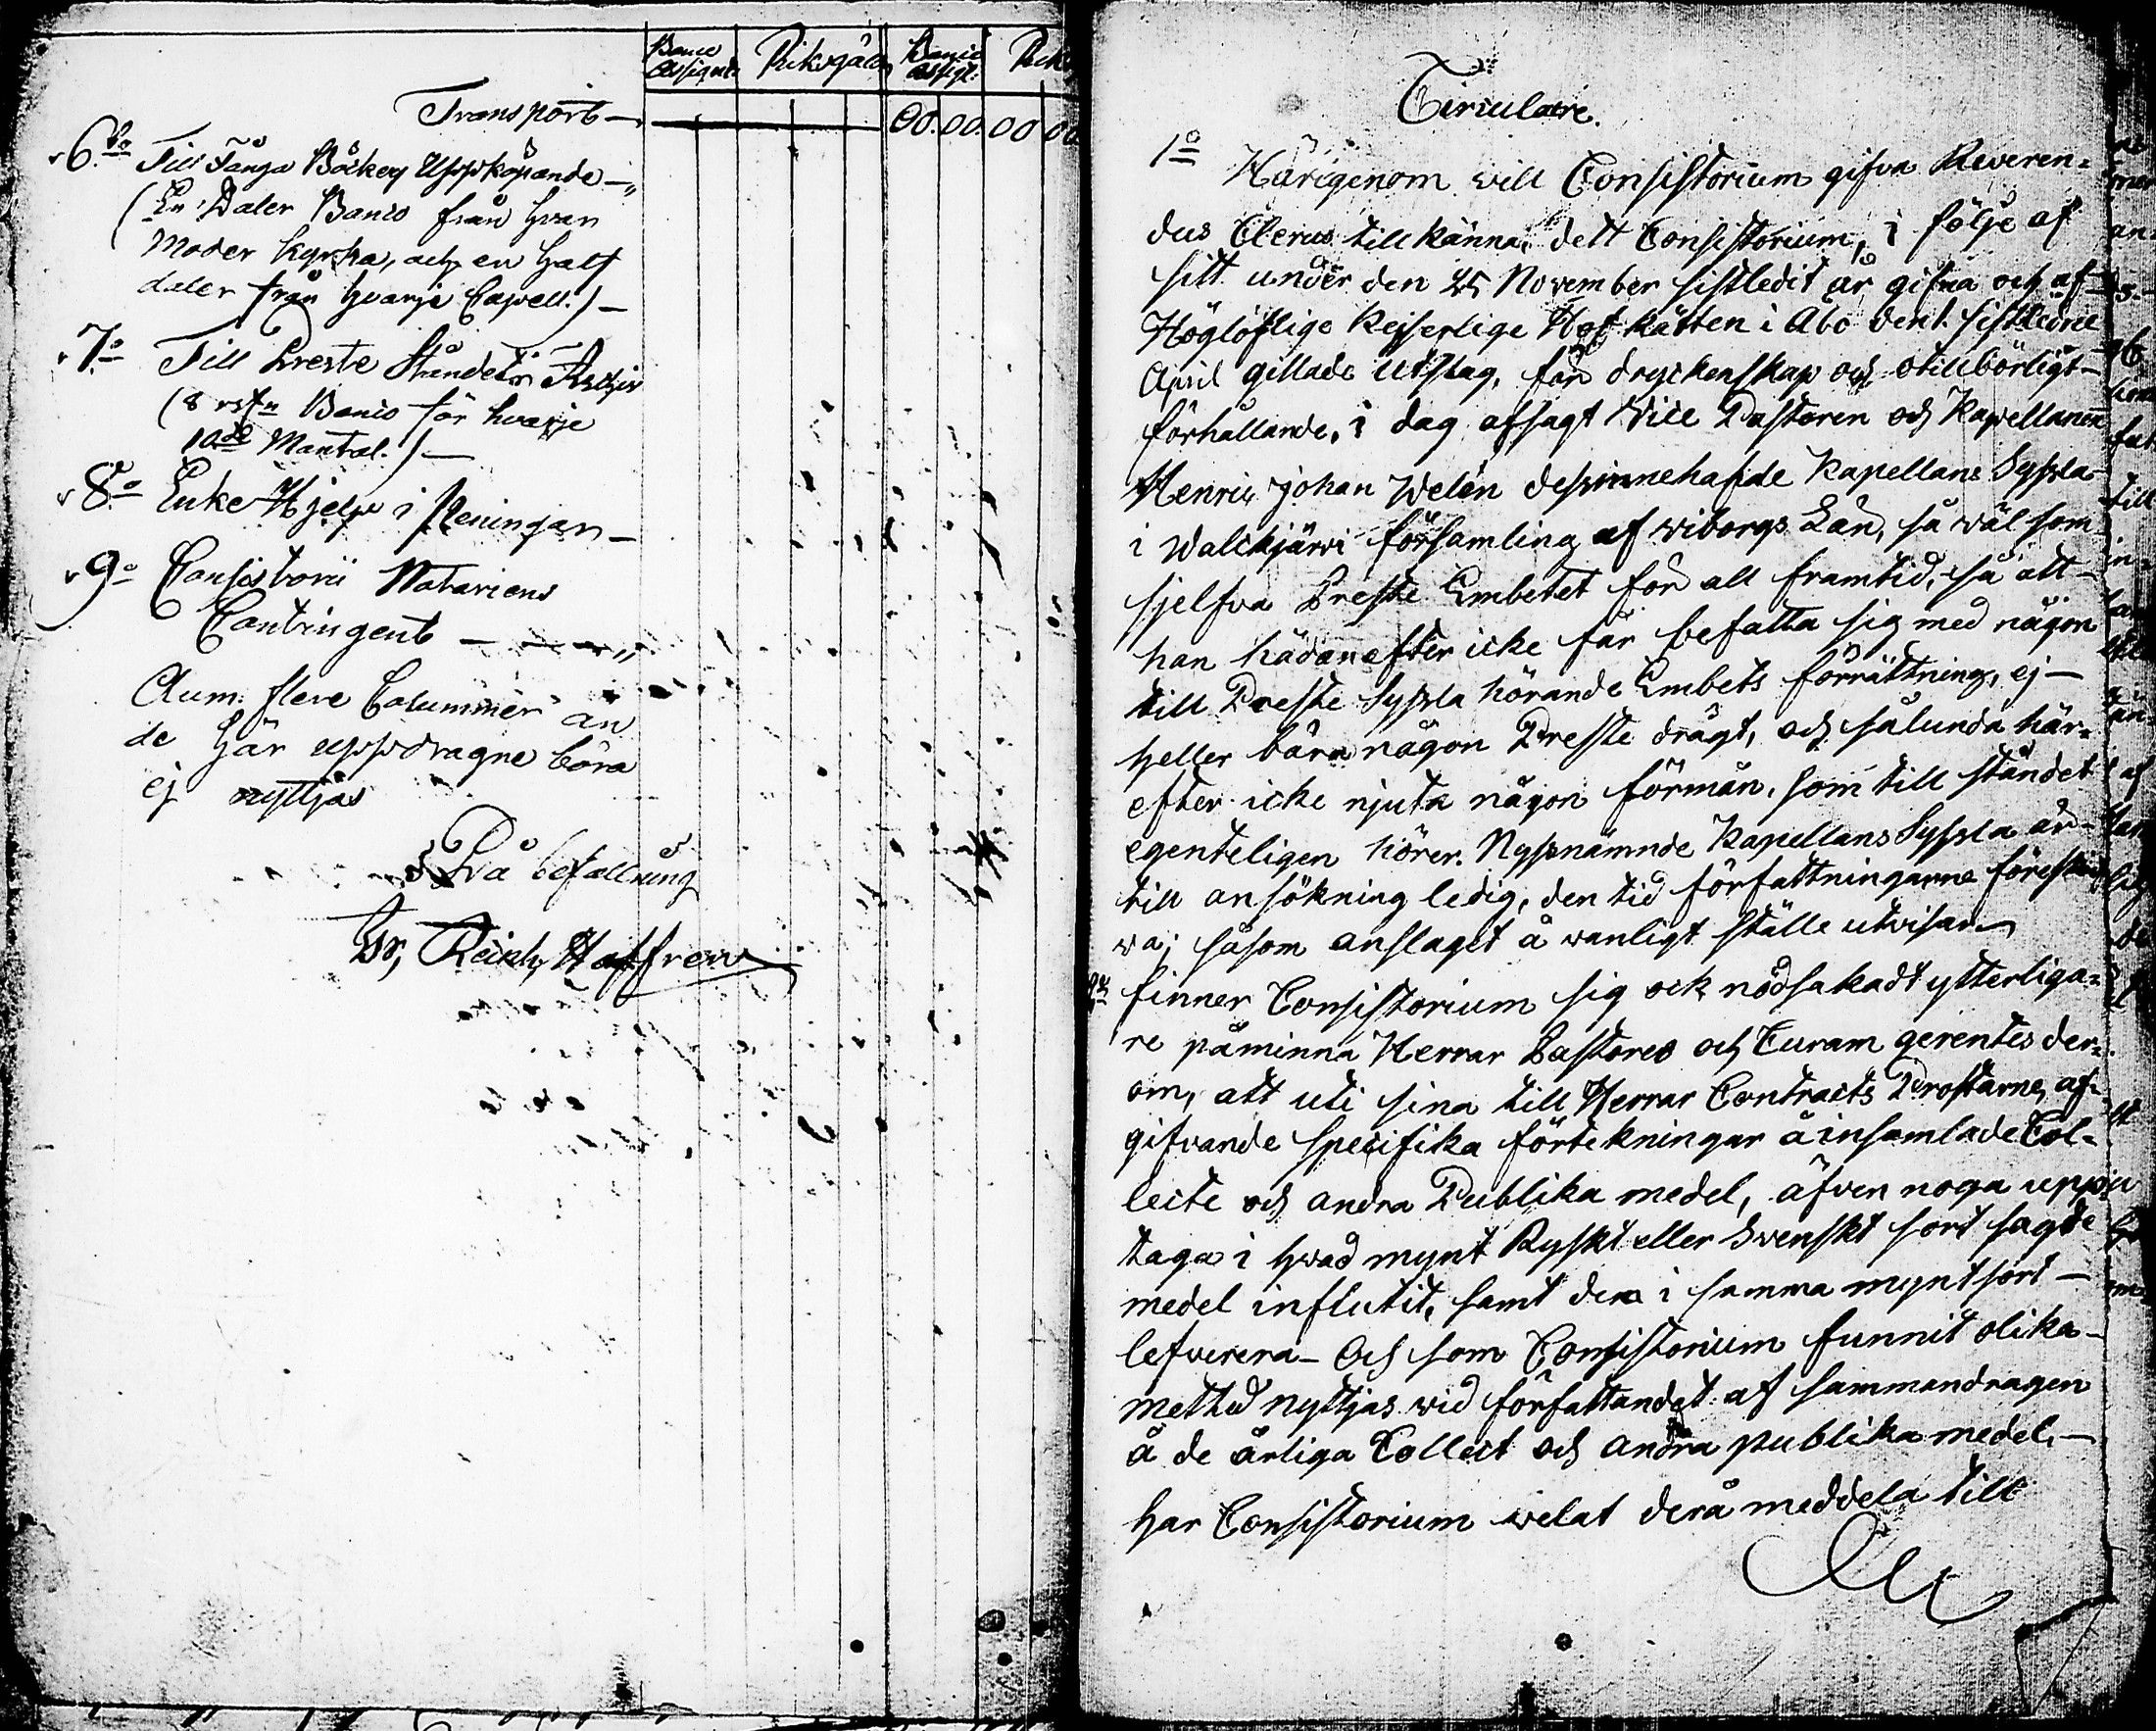 Banco Assignt. Riksgäld Banco assigt. Rick
Transport — 00.00.00 00
6.to Till Fånga Böckers Uppköpande —"
(En Daler Banco från hvar
Moder kyrka, och en half
daler från hvarje Capell.) —
7.o Till Preste Ståndets
(8 rst. Banco för hvarje
10de Mantal.) —
8.o Enke Hjelpe i Peningar —
9.o Consistorii Notariens
Contingent — — — "
Anm. flere Columner än
de här uppdragne böra
ej nyttjas
På befallning
Gr, Reinh. Haffren
Circulaire.
1o Härigenom will Consistorium gifva Reveren=
dus Clerus tillkänna, dett Consistorium, i följe af
sitt under den 25 November sistledit år gifna och af —
Höglöflige Kejserlige Hof Rätten i Åbo den 1. sistledne
April gillade Utslag, för dryckenskap och otillbörligt —
förhållande, i dag afsagt Vice Pastoren och Kapellanen
Henric Johan Welèn dess innehafde Kapellans Syssla
i Walckjärvi församling af Wiborgs Län, så wäl som
sjelfva Preste Embetet för all framtid, så att —
han hädanefter icke får befatta sig med någon
till Preste Syssla hörande Embets förrättning, ej —
heller bära någon Preste drägt, och sålunda här=
efter icke njuta någon förmån, som till ståndet
egenteligen hörer. Nyssnämnde Kapellans Syssla är —
till ansökning ledig, den tid författningarne föreskrif
wa; såsom anslaget å vanligt ställe utvisar —
2o finner Consistorium sig ock nödsakadt ytterliga=
re påminna Herrar Pastores och Curam gerentes der=
om, att uti sina till Herrar Contracts Prostarne, af=
gifvande specifika förtekningar å insamlade Col=
lecte och andra Publika medel, äfven noga upp=
taga i hvad mynt Ryskt eller Svenskt sort sagde
medel influtit, samt dem i samma myntsort —
lefverera — Och som Consistorium funnit olika —
methed nyttjas vid författandet af sammandragen
å de årliga Collect och andra publika medel, —
har Consistorium velat derå meddela till